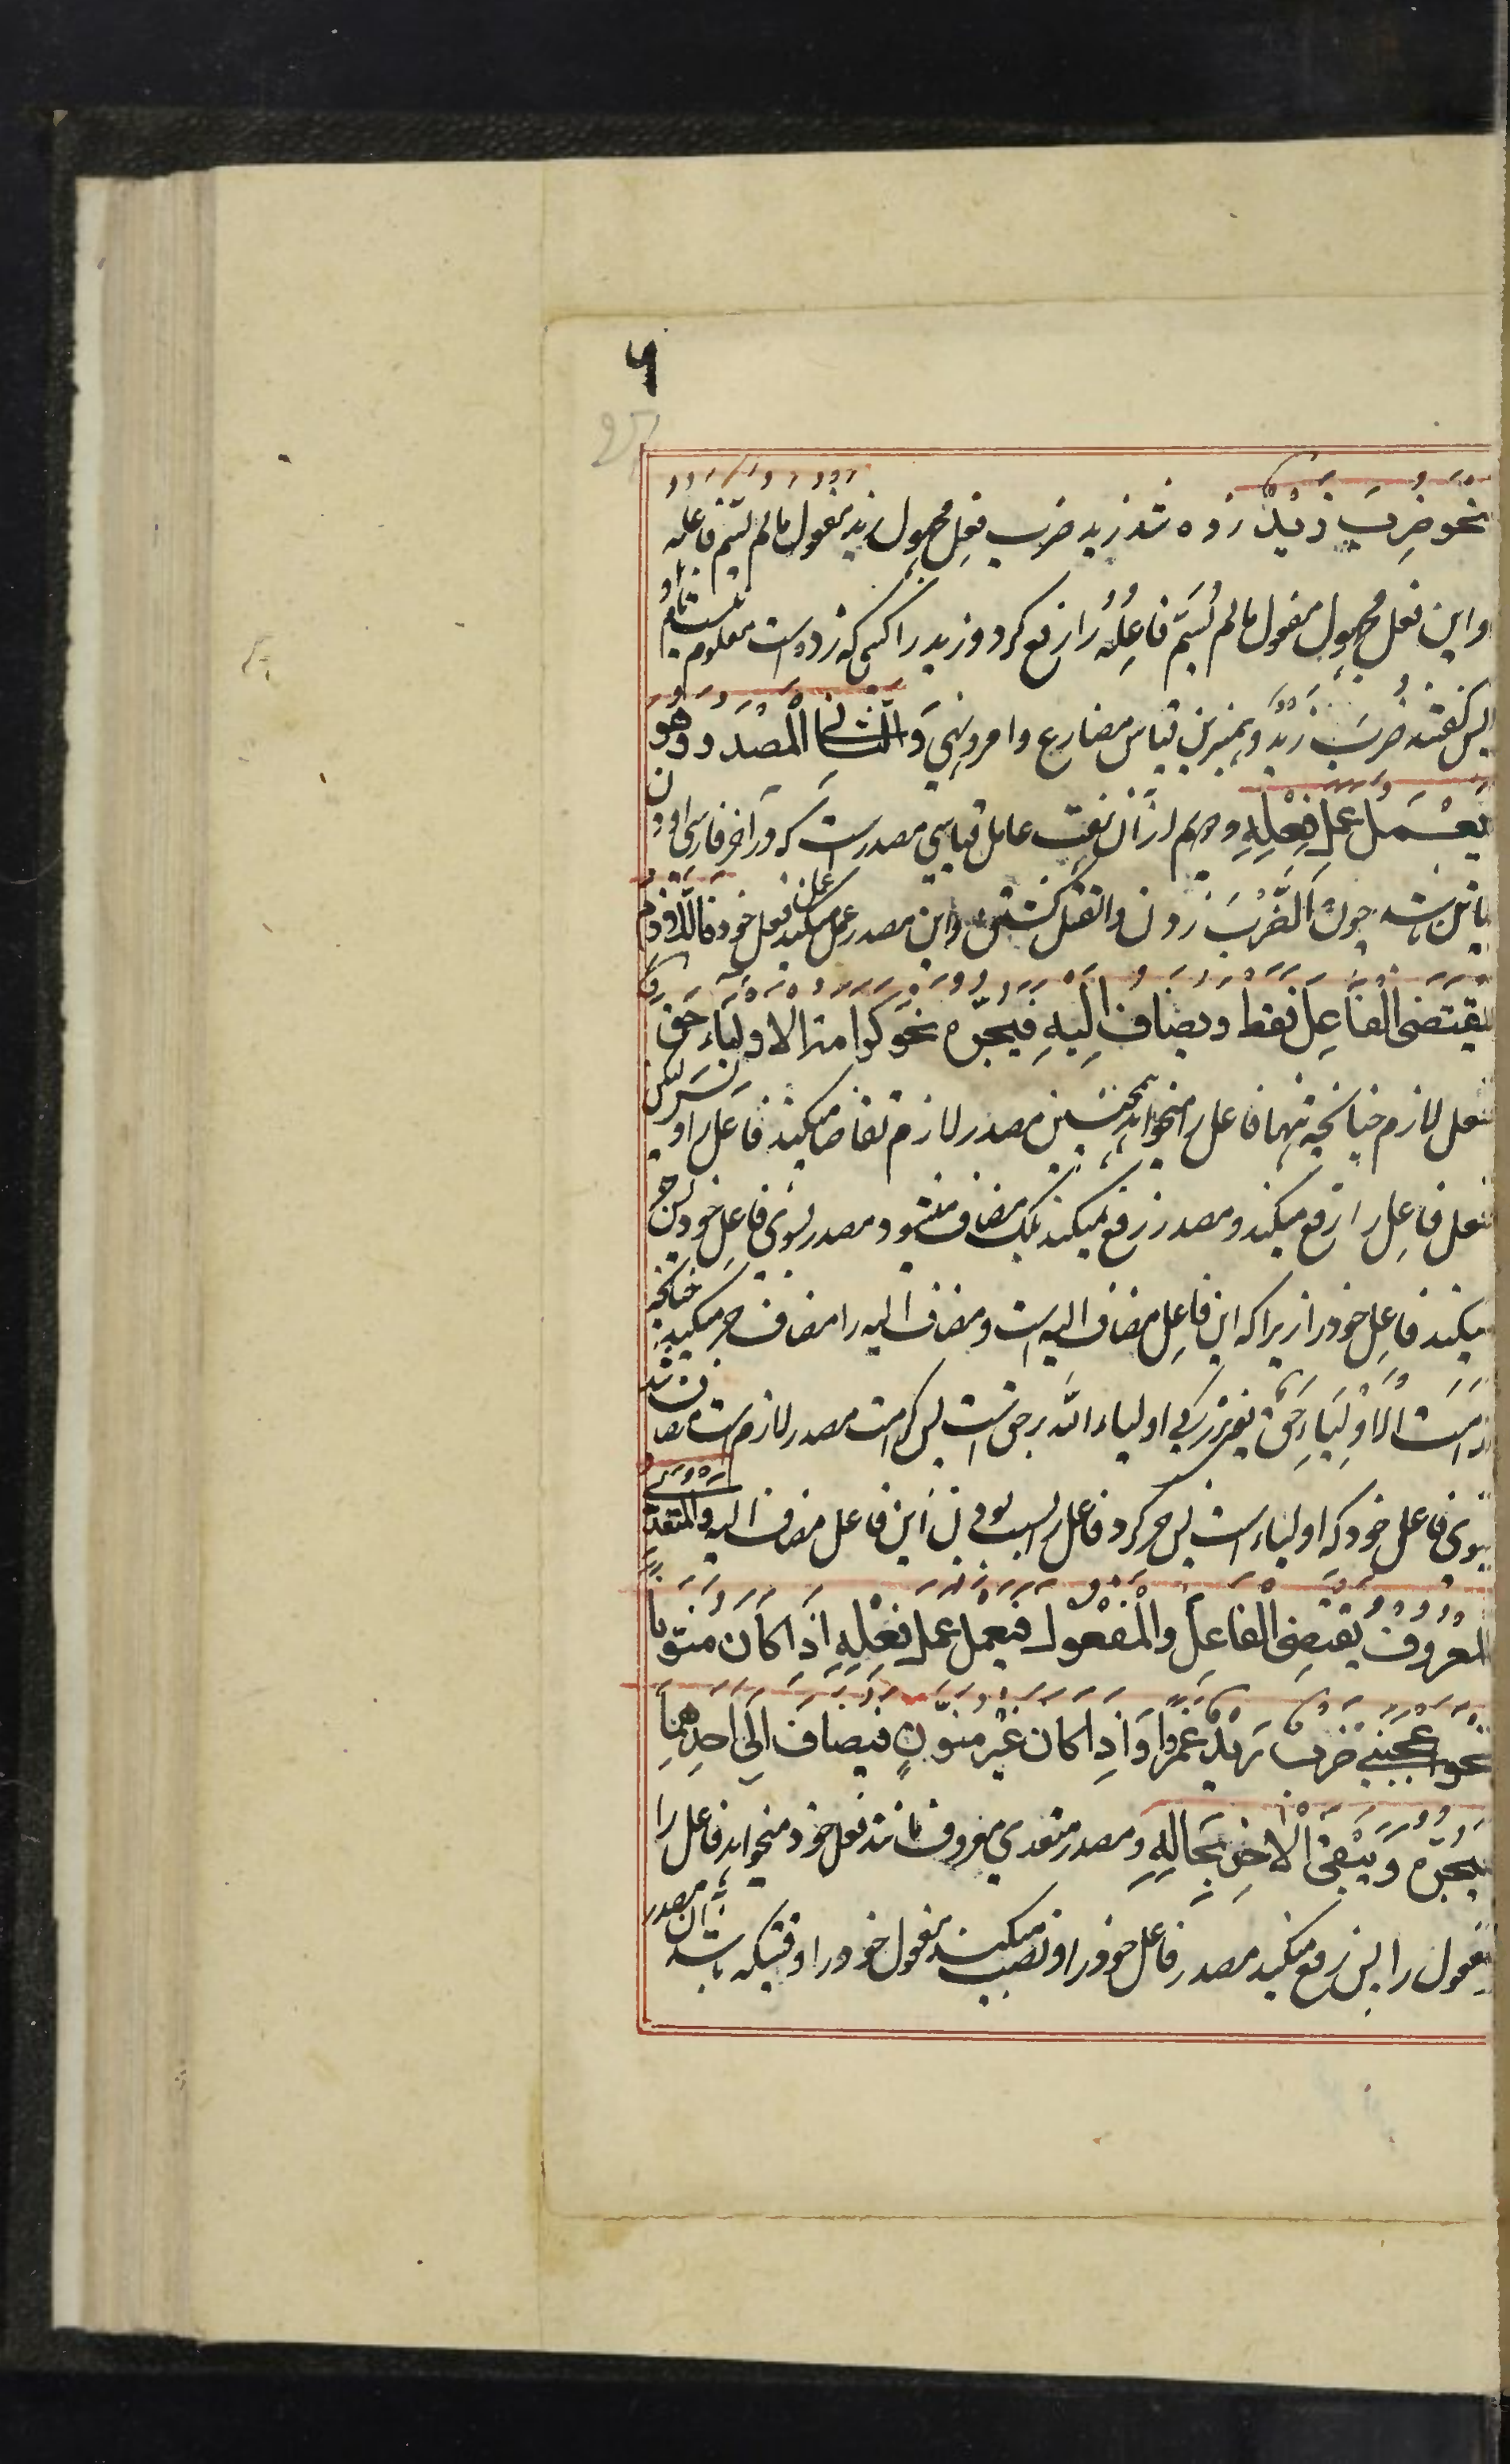 ٩
25
نحو ضُرِبَ زَیْدٌ زده شد زید ضرب فعل مجهول زید مفعول مالم یسم فاعله
واین فعل مجهول مفعول مالم یُسَمّ فاعِلُهُ را رفع کرد وزید را کسی که زده است معلوم نیست
پس گفتند ضُرِبَ زَیْدٌ وبمبرین قیاس مضارع وامر ونهی وَالثّانی المَصْدَر وَهُوَ
یَعْمَلُ عَمَلَ فِعْلِهِ ودویم ازان هفت عامل قیاسی مصدر است که در آخر فارسی او دن
یا تن باشد چون اَلضَّرْبُ زدن والقتل کشتن واین مصدر عمل میکند عمل فعل خود فَاللّازِمُ
یَقْتَضی الْفَاعِلَ فَقَطْ وَیُضَافُ اِلَیْهِ فَیَجُرُّهُ نحو کرامة الاولیاء حَقٌّ
فعل لازم چنانچه تنها فاعل را میخواهد همچنین مصدر لازم تقاضا میکند فاعل را و لیکن
فعل فاعل را رفع میکند ومصدر رفع نمیکند بلک مضاف میشود مصدر بسوی فاعل خود پس جر
میکند فاعل خود را زیراکه این فاعل مضاف الیه است ومضاف الیه را مضاف جر میکند چنانچه
کرامَتُ الاَوْلِیَاءِ حَقٌّ یعنی بزرگی اولیاء الله برحق است پس کرامت مصدر لازم است مضاف شد
بسوی فاعل خود که اولیاء است پس جر کرد فاعل را بسبب بودن این فاعل مضاف الیه وَالمُتَعَدّی
المَعْرُوفُ یَقْتَضِی الْفَاعِلَ وَالْمَفْعُولَ فَیَعْمَلُ عَمَلَ فِعْلِهِ اِذَا کَانَ مُنَوَّنًا
نَحْوُ اَعْجَبَنِی ضَرْبٌ زَیْدٌ عَمْرًوا وَاِذَا کَانَ غَیْرَ مُنَوَّنٍ فَیُضَافُ اِلَی اَحَدِهِمَا
فَیَجُرُّهُ وَیَبْقَی الْاٰخِرُ بِحَالِهِ ومصدر متعدی معروف مانند فعل خود میخواهد فاعل را
مفعول را پس رفع میکند مصدر فاعل خود را ونصب میکند مفعول خود را وقتیکه باشد آن مصدر